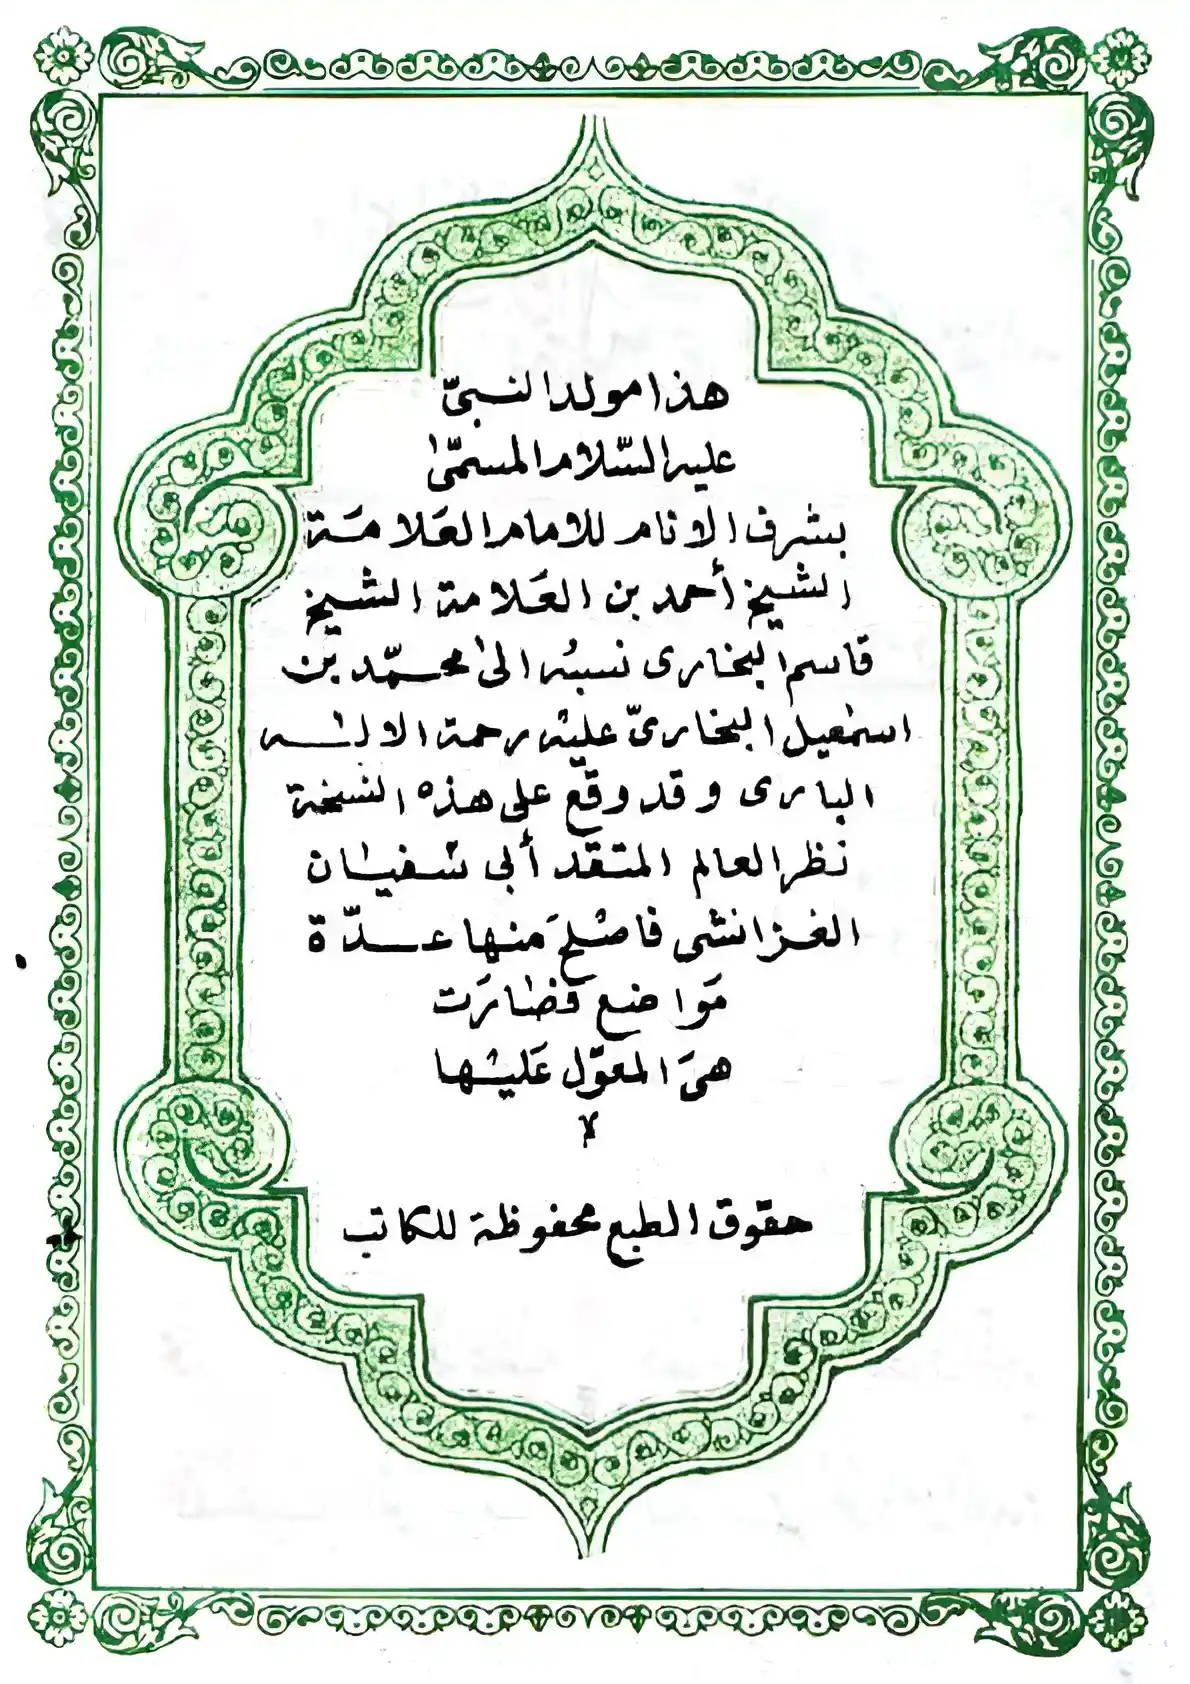 هذا مولد النبىّ
عليه السّلام المسمّى
بشرف الانام للامام العَلامَة
الشيخ أحمد بن العَلامة الشيخ
قاسم البخارى نسبُه الىٰ محمّد بن
اسمٰعيل البخارىّ عليْه رحمة الالٰه
البارى وقد وقع على هذه النسْخة
نظر العالم المتقد أبى سُفيان
الغزانشى فاصْلحَ منها عدّة
مَواضع فصٰارَت
هىَ المعوّل عَليْها
لا
حقوق الطبع محفوظة للكاتب